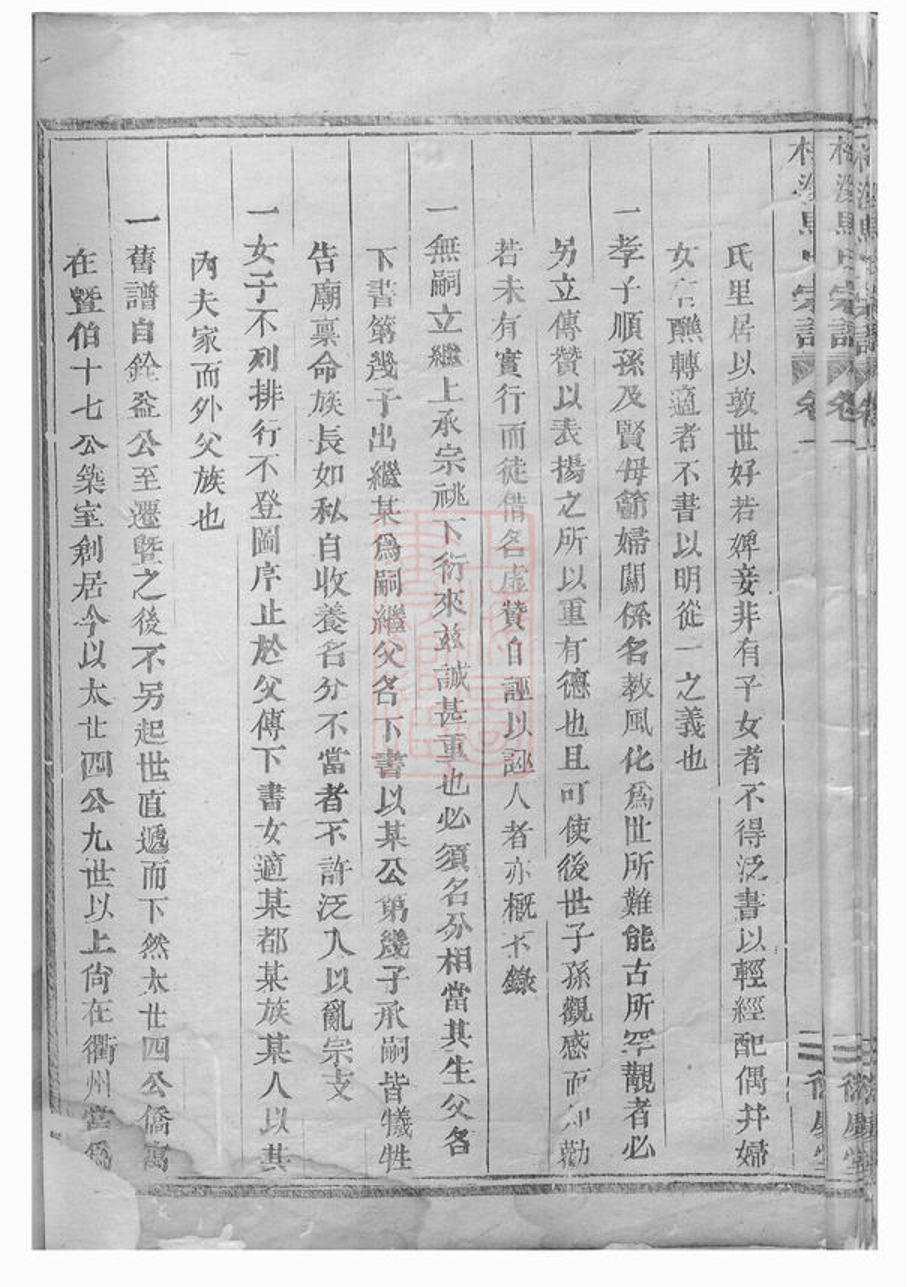 氏里居以敦世好若婢妾非有子女者不得泛書以輕經配偶并婦
女醮轉適者不書以明從一之義也
一孝子順孫及賢母節婦關係名教風化爲世所難能古所罕觀者必
另立傳贊以表揚之所以重有德也且可使後世子孫觀感而知勸
若未有實行而徒借名虛贊自誣以誣人者亦概不錄
一無嗣立繼上承宗祧下衍來玆誠甚重也必須名分相當其生父各
下書第幾子出繼某爲嗣繼父名下書以某公第幾子承嗣皆犧牲
告廟稟命族長如私自收養名分不當者不許泛入以亂宗支
一女子不列排行不登圖序止於父傳下書女適某都某族某人以其
內夫家而外父族也
一舊譜自銓公至遷暨之後不另起世直遞而下然太廿四公僑寓
在暨伯十七公築室創居今以太廿四公九世以上尙在衢州當爲
宗譜 卷一 二